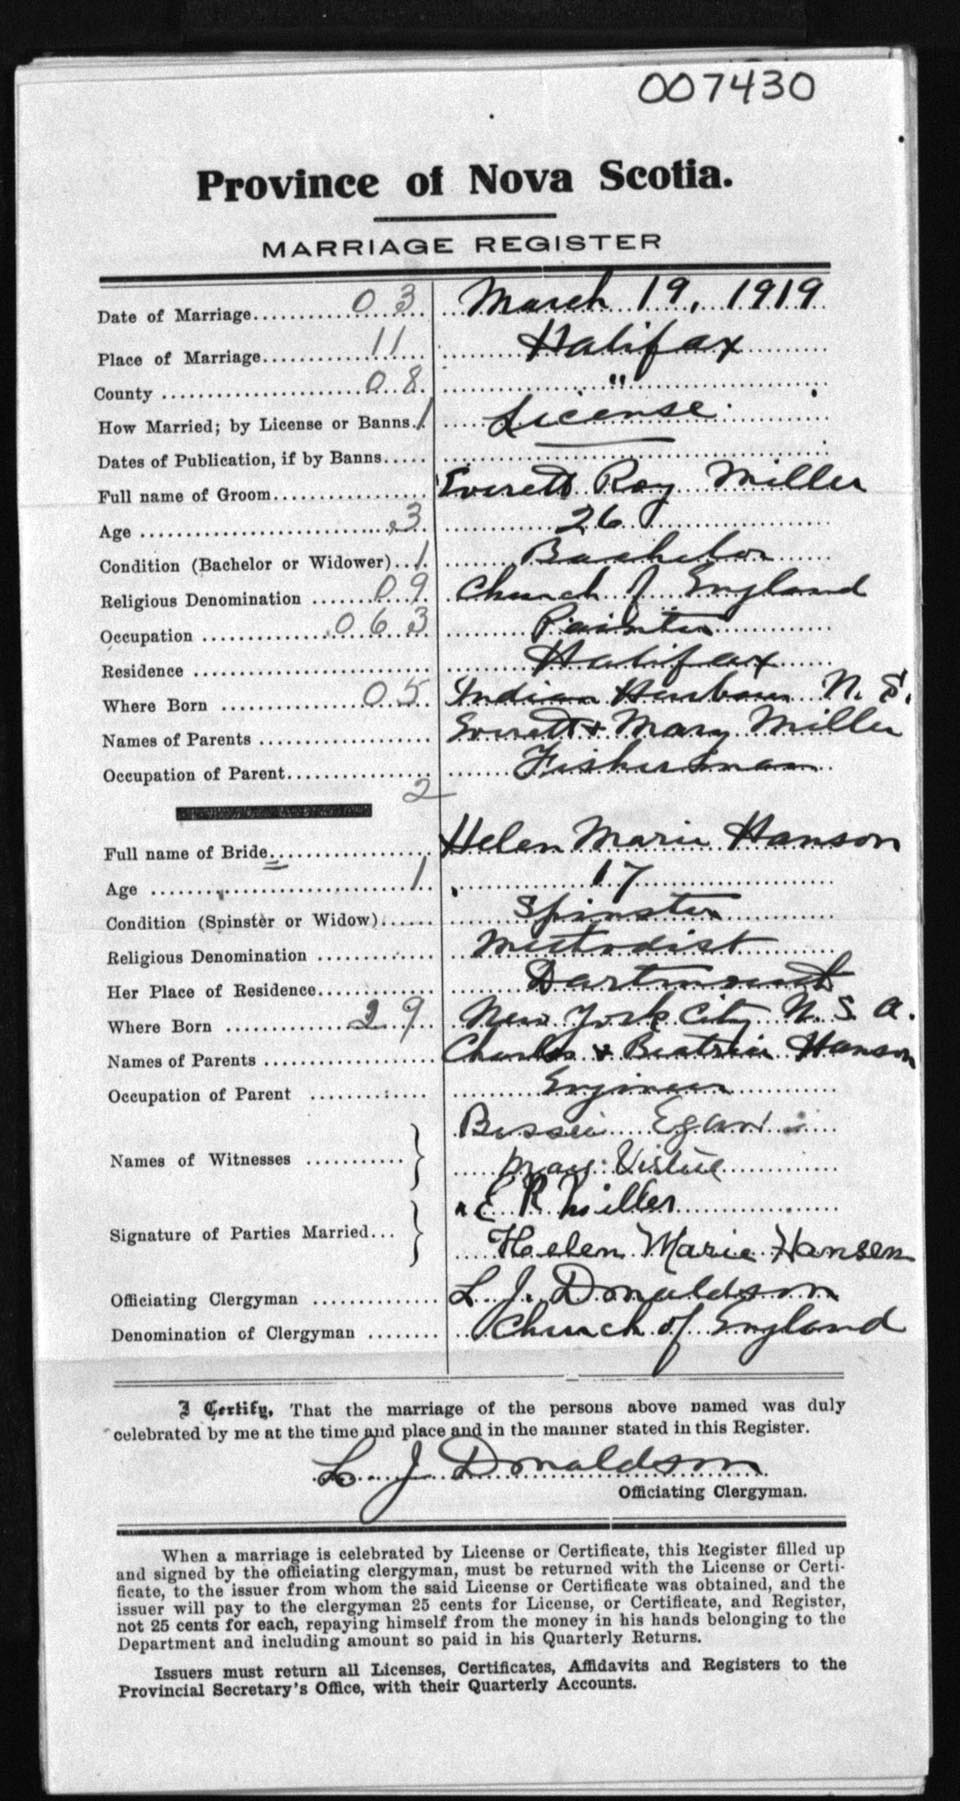 007430
Province of Nova Scotia.
MARRIAGE REGISTER
Date of Marriage 03 March 19, 1919
Place of Marriage 11 Halifax
County 08 "
How Married; by License or Banns 1 License
Dates of Publication, if by Banns
Full name of Groom Everett Roy Miller
Age 3 26
Condition (Bachelor or Widower) 1 Bachelor
Religious Denomination 09 Church of England
Occupation 063 Painter
Residence Halifax
Where Born 05 Indian Harbour N. S.
Names of Parents Everett & Mary Miller
Occupation of Parent Fisherman
2
Full name of Bride Helen Marie Hanson
Age 1 17
Condition (Spinster or Widow) Spinster
Religious Denomination Methodist
Her Place of Residence Dartmouth
Where Born 29 New York City U. S. A.
Names of Parents Charles & Beatrice Hanson
Occupation of Parent Engineer
Names of Witnesses Bessie Egan
May Virtue
Signature of Parties Married E R Miller
Helen Marie Hansen
Officiating Clergyman L. J. Donaldson
Denomination of Clergyman Church of England
I Certify, That the marriage of the persons above named was duly
celebrated by me at the time and place and in the manner stated in this Register.
L. J. Donaldson
Officiating Clergyman.
When a marriage is celebrated by License or Certificate, this Register filled up
and signed by the officiating clergyman, must be returned with the License or Certi-
ficate, to the issuer from whom the said License or Certificate was obtained, and the
issuer will pay to the clergyman 25 cents for License, or Certificate, and Register,
not 25 cents for each, repaying himself from the money in his hands belonging to the
Department and including amount so paid in his Quarterly Returns.
Issuers must return all Licenses, Certificates, Affidavits and Registers to the
Provincial Secretary's Office, with their Quarterly Accounts.